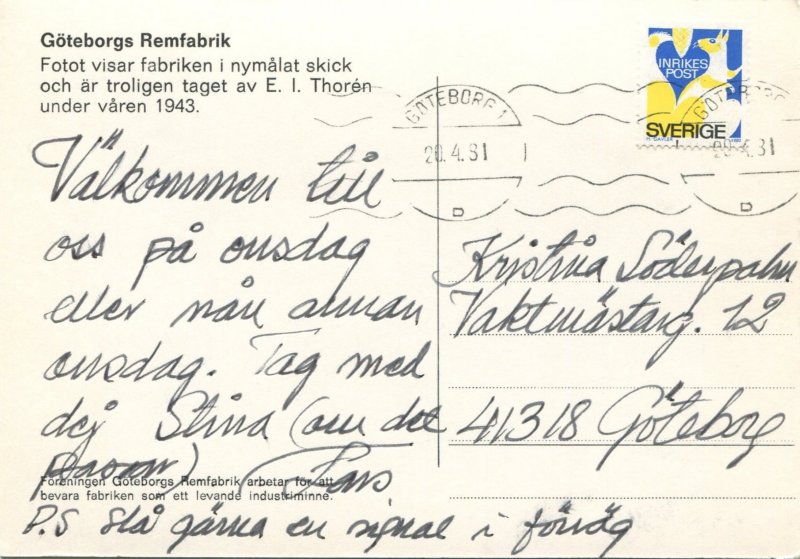 Göteborgs Remfabrik
Fotot visar fabriken i nymålat skick
och är troligen taget av E. I. Thorén
under våren 1943.
INRIKES
POST
SVERIGE
GÖTEBORG 1
20.4.81
D
GÖTEBORG
20.4.81
D
Välkommen till
oss på onsdag
eller nån annan
onsdag. Tag med
dej Stina (om det
passar) Lars
Kristina Söderpalm
Vaktmästarg. 12
41318 Göteborg
Föreningen Göteborgs Remfabrik arbetar för att
bevara fabriken som ett levande industriminne.
P.S slå gärna en signal i förväg